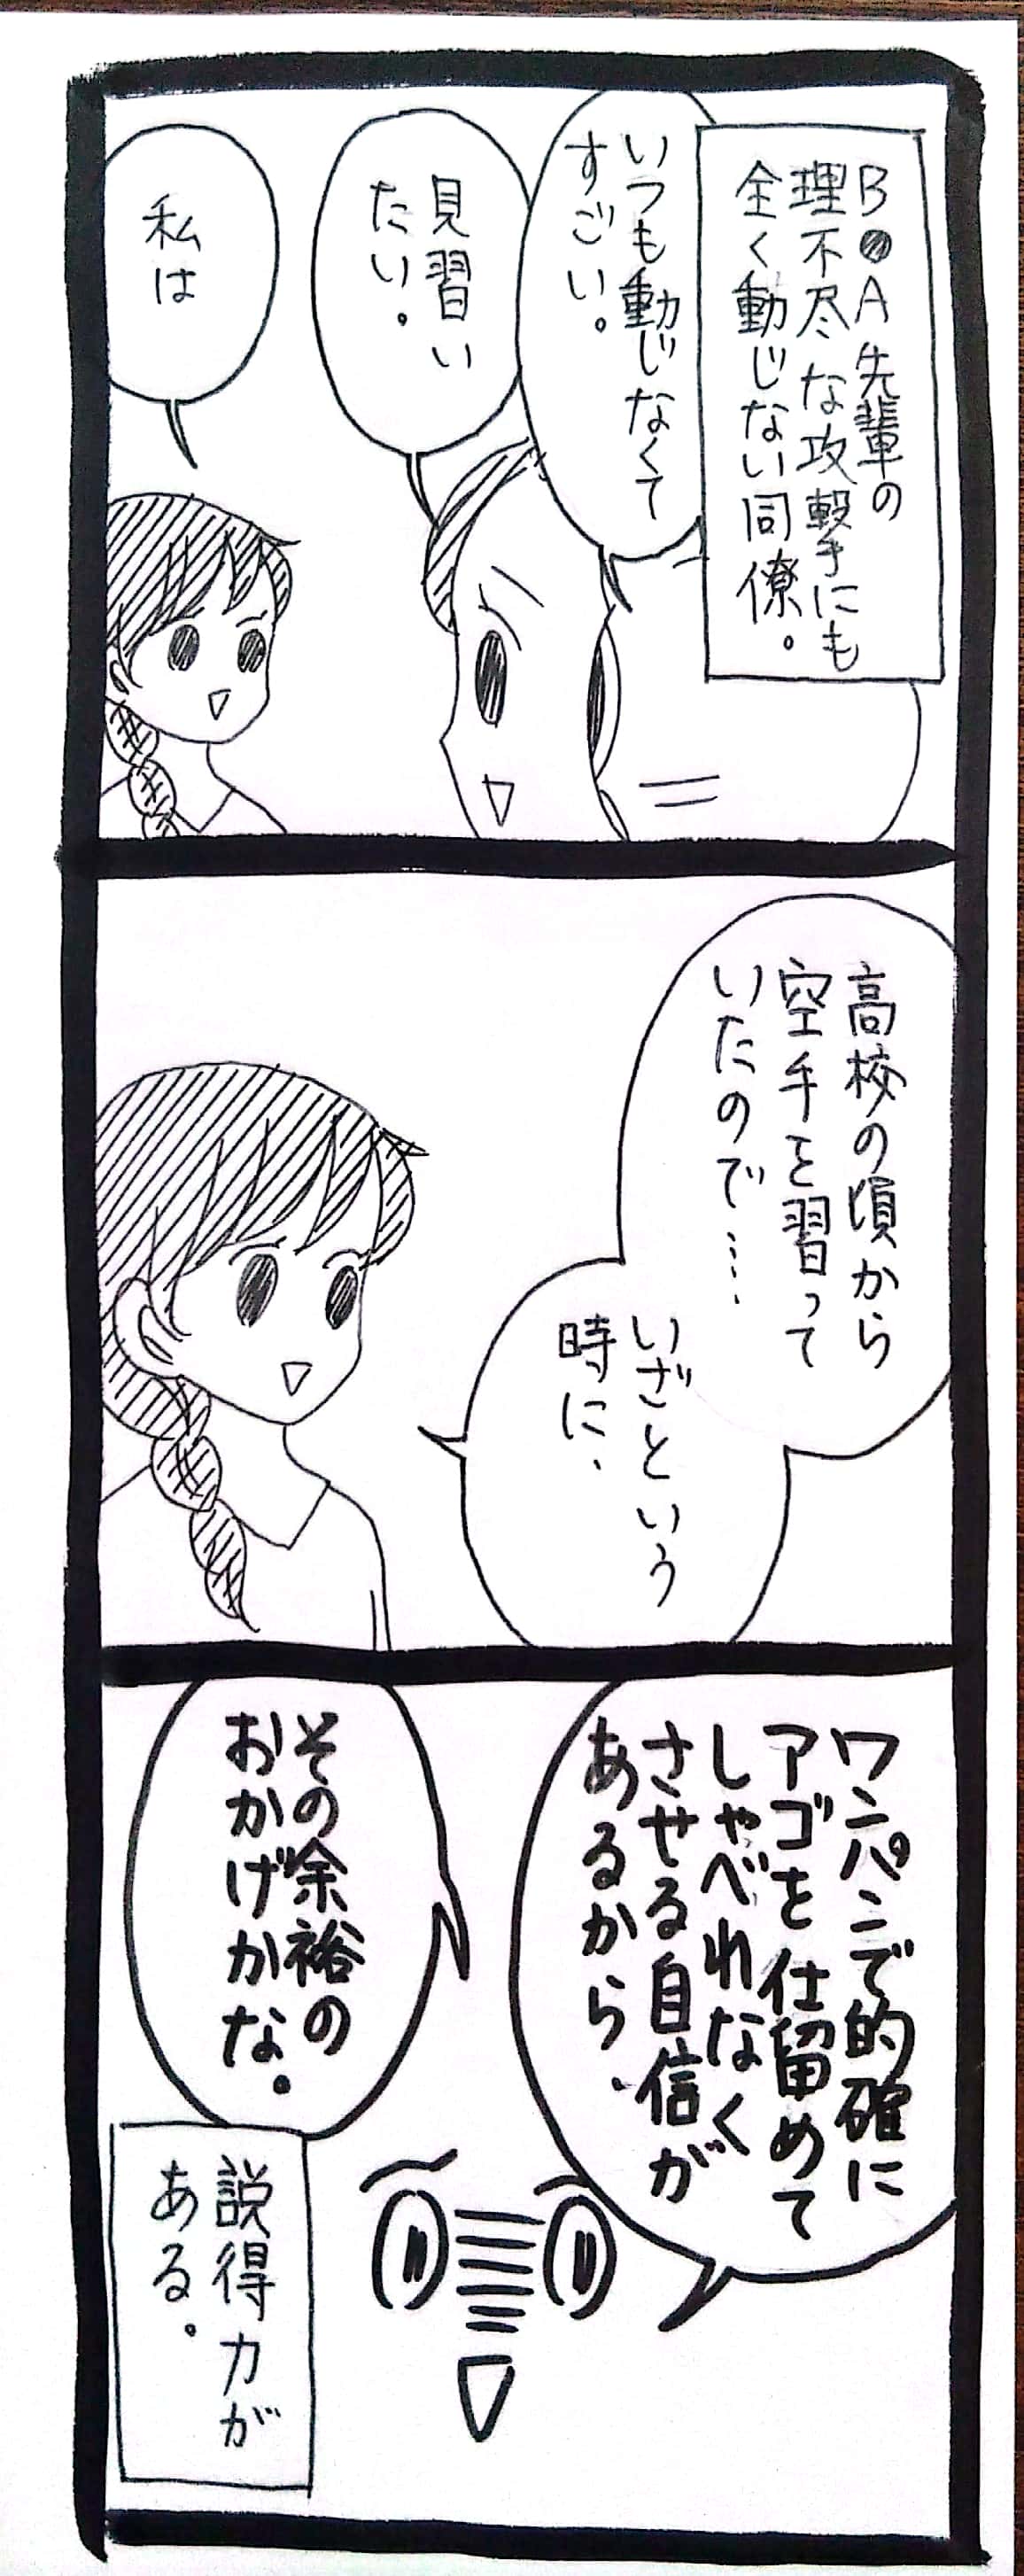 B●A先輩の
理不尽な攻撃にも
全く動じない同僚。
いつも動じなくて
すごい。
見習い
たい。
私は
高校の頃から
空手を習って
いたので……
いざという
時に、
ワンパンで的確に
アゴを仕留めて
しゃべれなく
させる自信が
あるから、
その余裕の
おかげかな。
説得力が
ある。